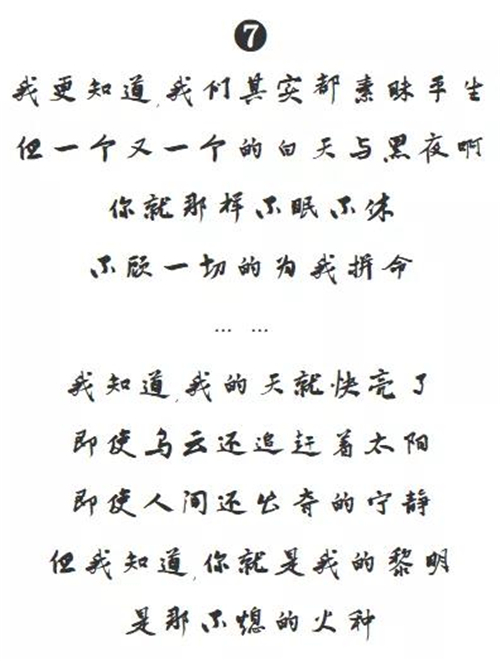 7
我更知道,我们其实都素昧平生
但一个又一个的白天与黑夜啊
你就那样不眠不休
不顾一切的为我拼命
... ...
我知道,我的天就快亮了
即使乌云还追赶着太阳
即使人间还出奇的宁静
但我知道,你就是我的黎明
是那不熄的火种